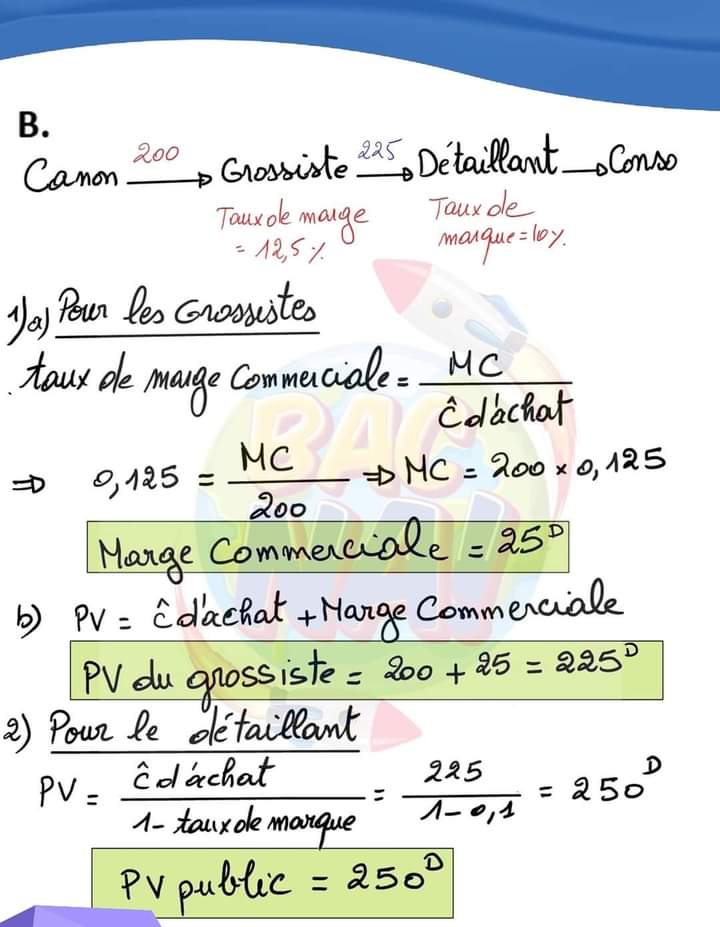 B.
Canon 200 → Grossiste 225 → Détaillant → Conso
Taux de marge
= 12,5%
Taux de
marque = 10%
1)a) Pour les Grossistes
. taux de marge Commerciale = MC / Ĉd'achat
⇒ 0,125 = MC / 200 ⇒ MC = 200 × 0,125
Marge Commerciale = 25ᴰ
b) PV = Ĉd'achat + Marge Commerciale
PV du grossiste = 200 + 25 = 225ᴰ
2) Pour le détaillant
PV = Ĉd'achat / 1- taux de marque = 225 / 1-0,1 = 250ᴰ
PV public = 250ᴰ
BAC
NAJ